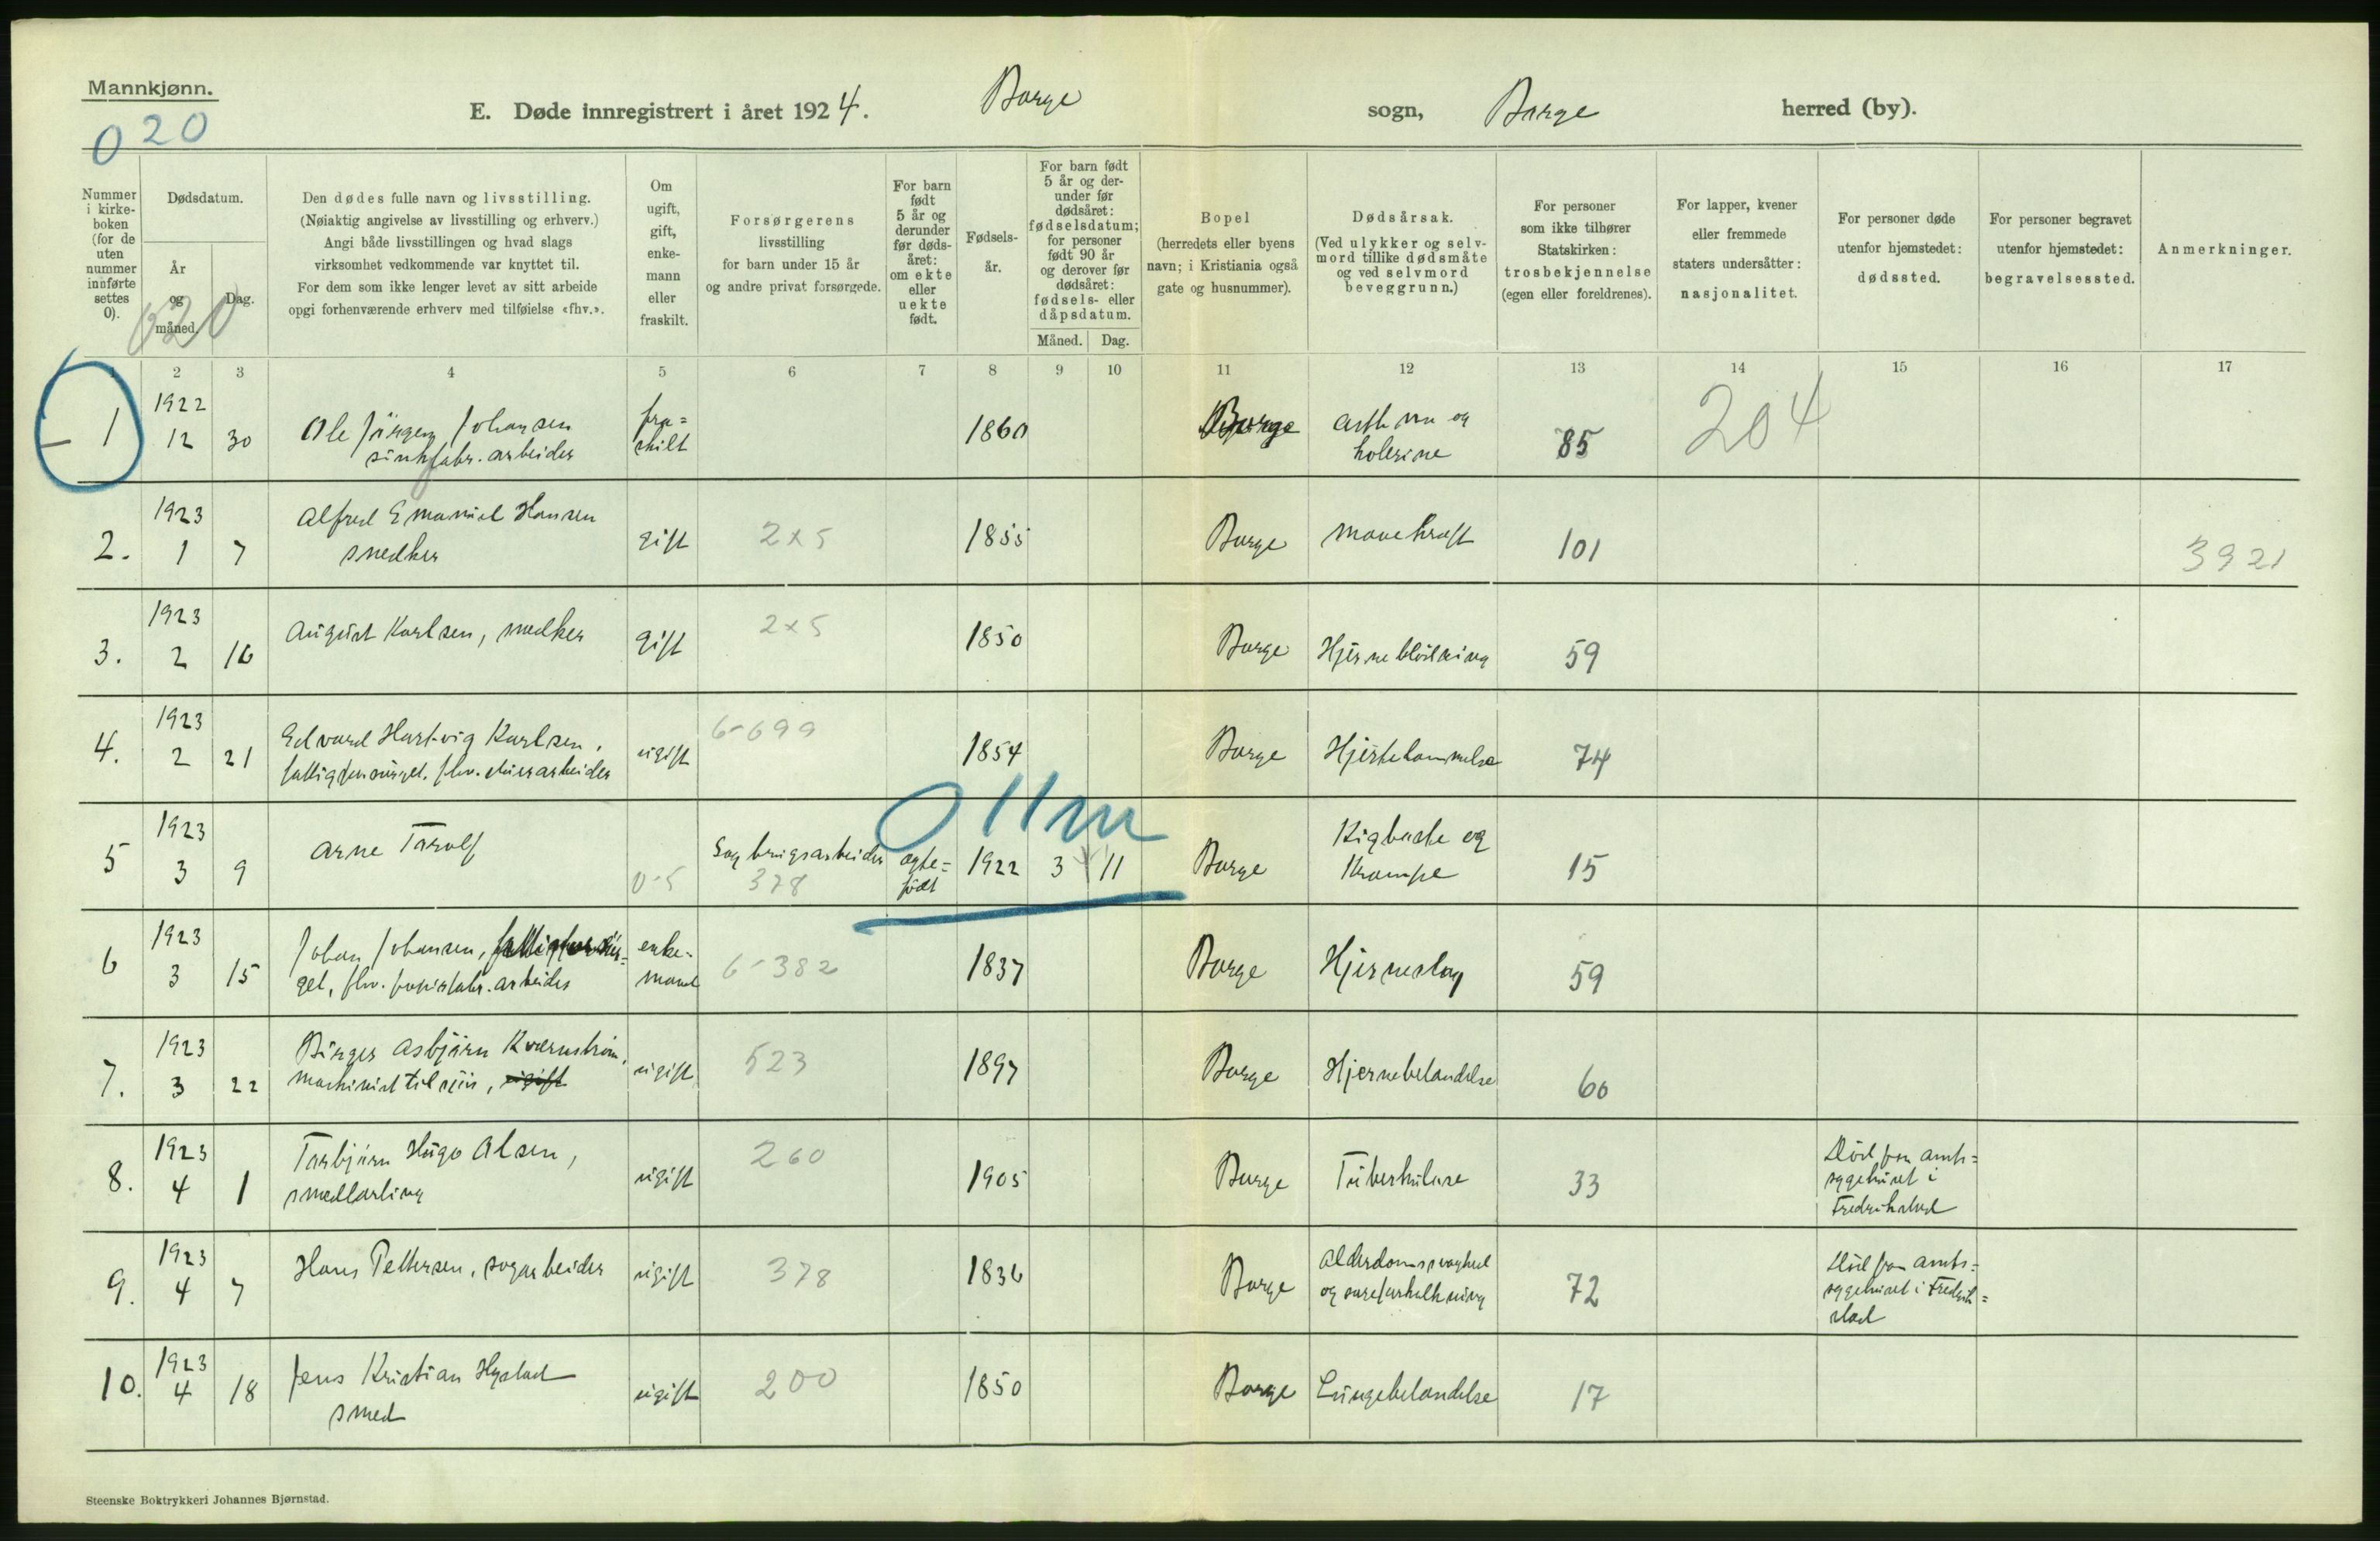 Mannkjønn.
020
E. Døde innregistrert i året 1924. Borge sogn, Borge herred (by).
Nummer i kirke- boken (for de uten nummer innførte settes 0).
Dødsdatum.
År og måned.
Dag.
020
Den dødes fulle navn og livsstilling.
(Nøiaktig angivelse av livsstilling og erhverv.)
Angi både livsstillingen og hvad slags
virksomhet vedkommende var knyttet til.
For dem som ikke lenger levet av sitt arbeide
opgi forhenværende erhverv med tilføielse «fhv.».
Om ugift, gift, enke- mann eller fraskilt.
Forsørgerens
livsstilling
for barn under 15 år
og andre privat forsørgede.
For barn født 5 år og derunder før døds- året: om ekte eller uekte født.
Fødsels- år.
For barn født 5 år og der- under før dødsåret: fødselsdatum; for personer født 90 år og derover før dødsåret: fødsels- eller dåpsdatum.
Måned. Dag.
Bopel
(herredets eller byens
navn; i Kristiania også
gate og husnummer).
Dødsårsak.
(Ved ulykker og selv-
mord tillike dødsmåte
og ved selvmord
beveggrunn.)
For personer
som ikke tilhører
Statskirken:
trosbekjennelse
(egen eller foreldrenes).
For lapper, kvener
eller fremmede
staters undersåtter:
nasjonalitet.
For personer døde
utenfor hjemstedet:
dødssted.
For personer begravet
utenfor hjemstedet:
begravelsessted.
Anmerkninger.
1 2 3 4 5 6 7 8 9 10 11 12 13 14 15 16 17
1 1922 12 30 Ole Jörgen Johansen fra= skilt 1860 Borge og 85 204
sinkfabr. arbeider
2. 1923 1 7 Alfred Emanuel Hansen gift 2x5 1855 Borge Mavekræft 101 3921
snedker
3. 1923 2 16 August Karlsen, snedker gift 2x5 1850 Borge Hjerneblödning 59
4. 1923 2 21 Edvard Hartvig Karlsen, ugift 6-699 1854 Borge Hjertelammelse 74
fattigforsörget, fhv.
5 1923 3 9 Arne Torolf 0-5 Sagbrugsarbeider 378 ægte= födt 1922 3 11 Borge Kighoste og Krampe 15
0 11 m
6 1923 3 15 Johan Johansen, fattigforsör= enke- mand 6-382 1837 Borge Hjerneslag 59
get, fhv. papirfabr. arbeider
7. 1923 3 22 Birger Asbjörn Kværnström, ugift 523 1897 Borge Hjernebetændelse 60
maskinist til sjös, ugift
8. 1923 4 1 Torbjörn Hugo Olsen, ugift 260 1905 Borge Tuberkulose 33 Död paa amts= sygehuset i Fredrikstad
smedlærling
9. 1923 4 7 Hans Pettersen, sagarbeider ugift 378 1836 Borge Alderdomssvaghed og aareforkalkning 72 Död paa amts= sygehuset i Fredrik= stad
10. 1923 4 18 Jens Kristian Hystad ugift 200 1850 Borge Lungebetændelse 17
smed
Steenske Boktrykkeri Johannes Bjørnstad.